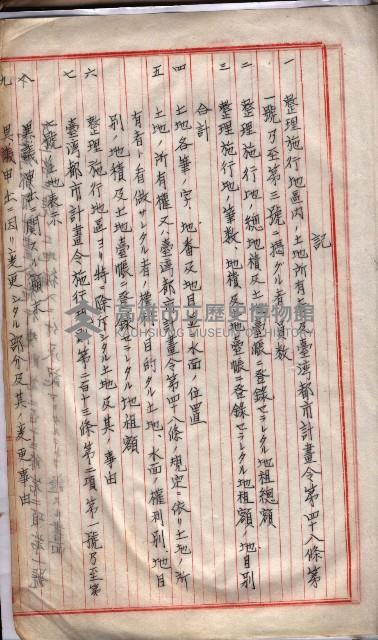 記
一 整理施行地區內ノ土地所有者及臺灣都市計畫令第四十八條第
一號乃至第三號ニ掲グル者ノ數
二 整理施行地ノ總地積及土地臺帳ニ登錄セラレタル地租總額
三 整理施行地ノ筆數、地積及土地臺帳ニ登錄セラレタル地租額ノ地目別
合計
四 土地各筆ノ字、地番及地目並ニ水面ノ位置
五 土地ノ所有權又ハ臺灣都市計畫令第四十八條ノ規定ニ依リ土地ノ所
有者ト看做サレタル者ノ權利ノ目的タル土地、水面ノ權利別、地目
別地積及土地臺帳ニ登錄セラレタル地租額
六 整理施行地區ヨリ特ニ除斥シタル土地及其ノ事由
七 臺灣都市計畫令施行規則第二百十三條第二項第一號乃至第
八
九 異議申出ニ因リ變更シタル部分及其ノ變更事由
高雄市立歷史博物館
KAOHSIUNG MUSEUM OF HISTORY